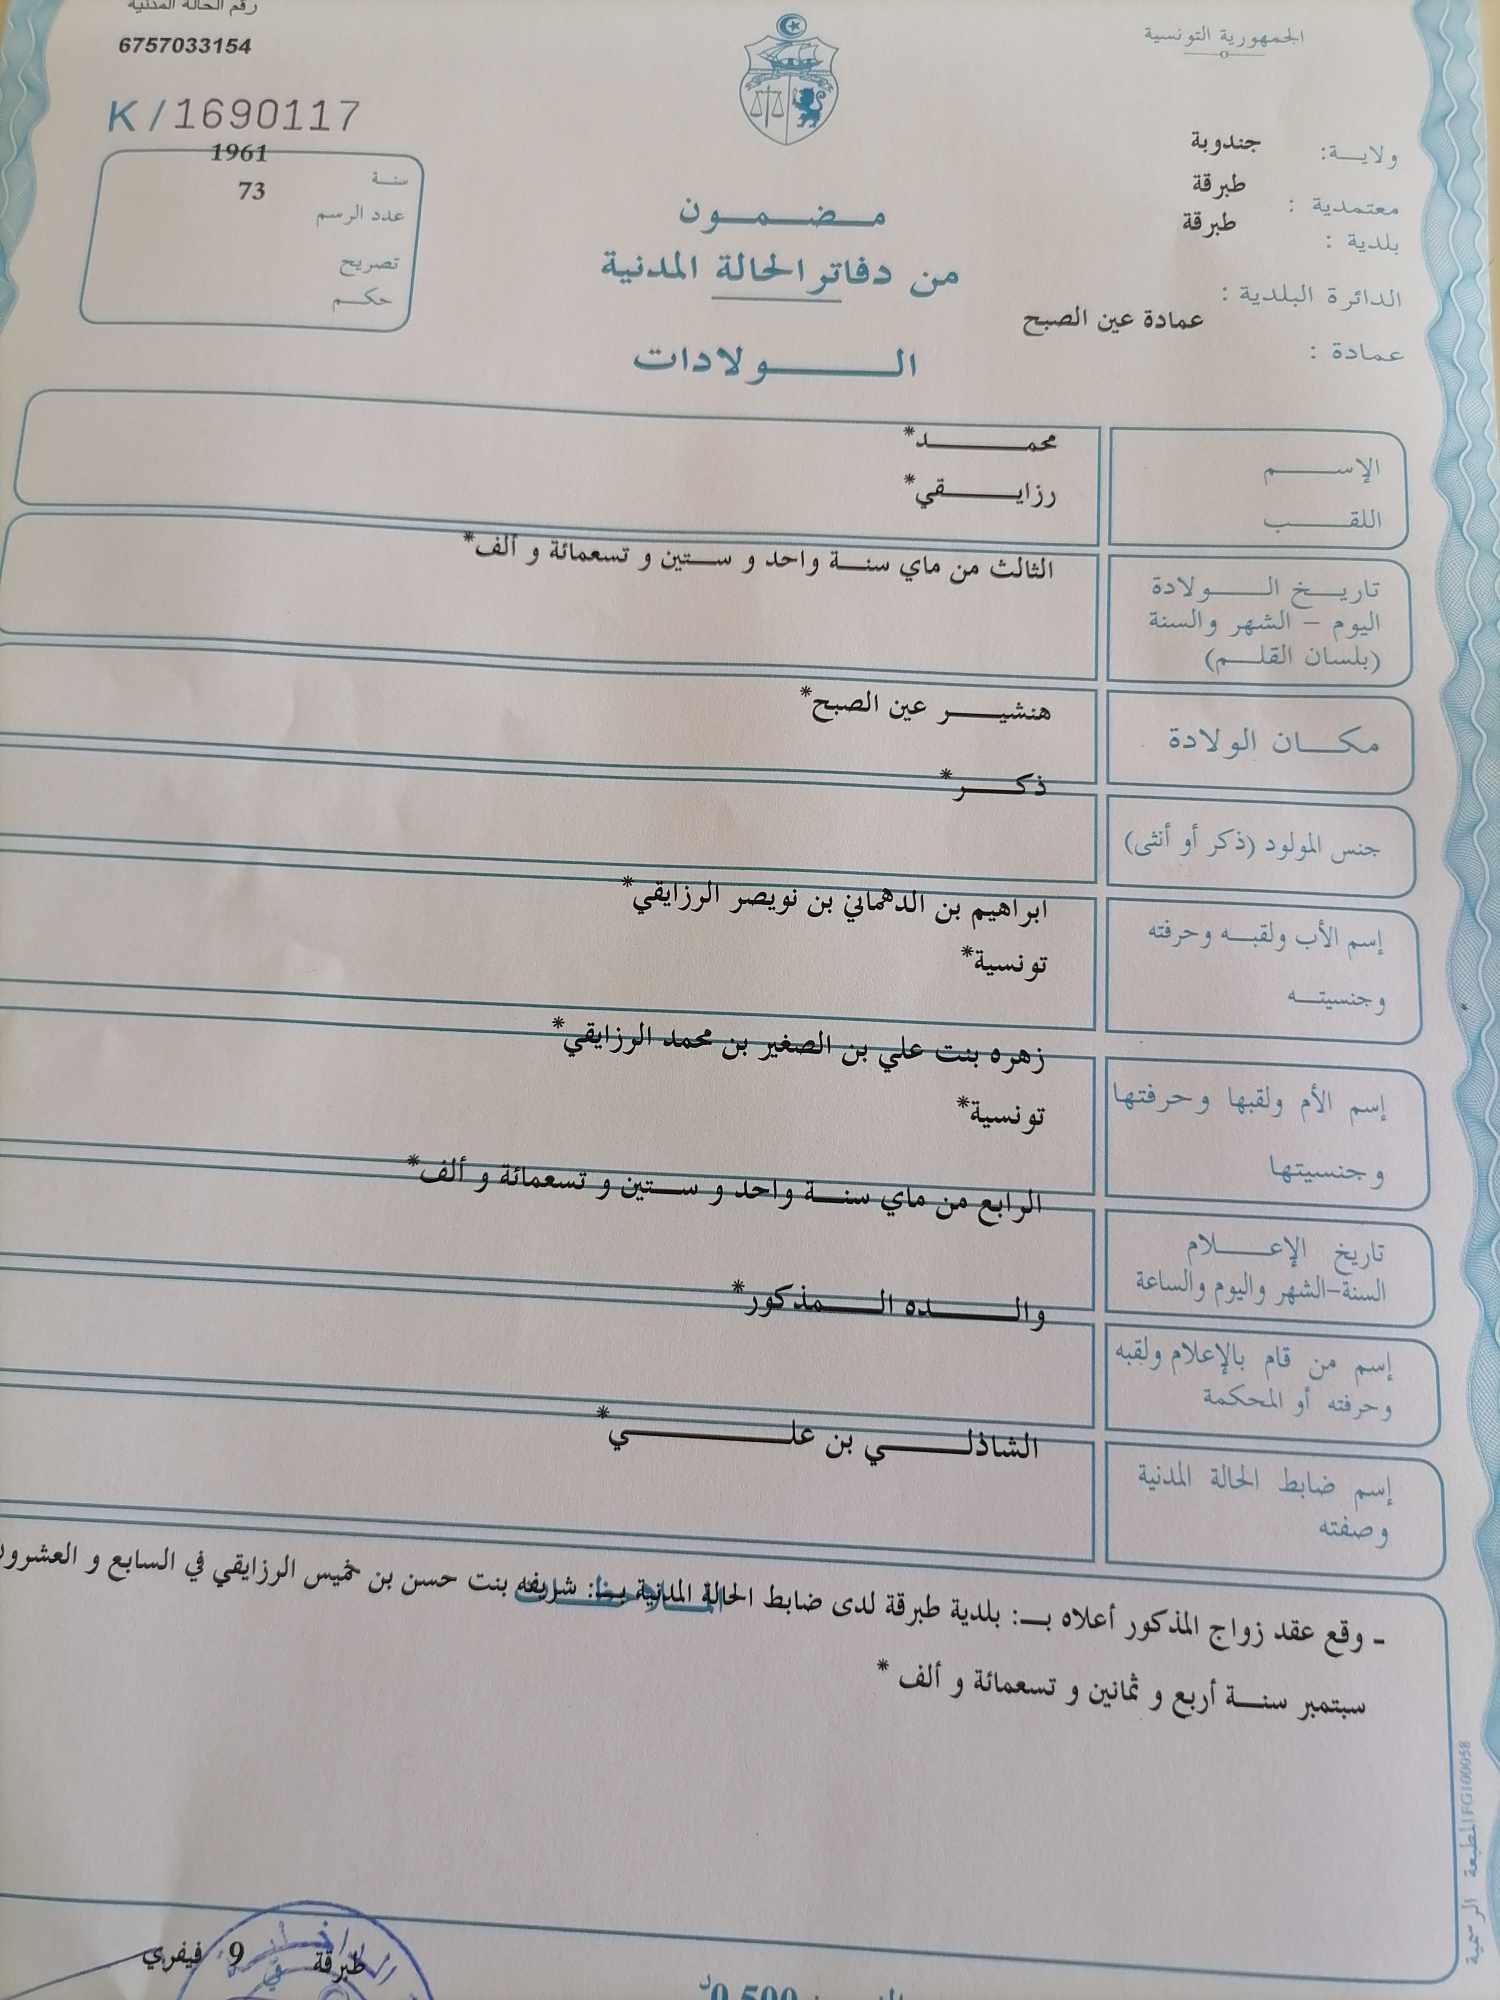 الجمهورية التونسية
رقم الحالة المدنية
6757033154
K/1690117
ولايـــة: جندوبة
معتمدية : طبرقة
بلدية : طبرقة
الدائرة البلدية :
عمادة عين الصبح
عمادة :
سنـة 1961
عدد الرسم 73
تصريح
حكـم
مـضـمـون
من دفاتر الحالة المدنية
الـــولادات
الإســـم محمـــد*
اللقـــب رزايـــقي*
تاريـخ الـــولادة
اليوم – الشهر والسنة
(بلسان القلـم)
الثالث من ماي سنـة واحد و ستين و تسعمائة و ألف*
مكـــان الولادة هنشيـــر عين الصبح*
جنس المولود (ذكر أو أنثى) ذكـــر*
إسم الأب ولقبـه وحرفته ابراهيم بن الدهماني بن نويصر الرزايقي*
وجنسيتـه تونسية*
إسم الأم ولقبها وحرفتها زهره بنت علي بن الصغير بن محمد الرزايقي*
وجنسيتها تونسية*
تاريخ الإعـــلام
السنة-الشهر واليوم والساعة
الرابع من ماي سنـة واحد و ستين و تسعمائة و ألف*
إسم من قام بالإعلام ولقبه
وحرفته أو المحكمة
والـــده الـــمذكور*
إسم ضابط الحالة المدنية
وصفته
الشاذلـــي بن علـــي*
- وقع عقد زواج المذكور أعلاه بـ: بلدية طبرقة لدى ضابط الحالة المدنية بـنا: شريفه بنت حسن بن خميس الرزايقي في السابع و العشرون
سبتمبر سنـة أربع و ثمانين و تسعمائة و ألف *
طبرقة في 9 فيفري
0,500 د
المطبعة الرسمية FG100058